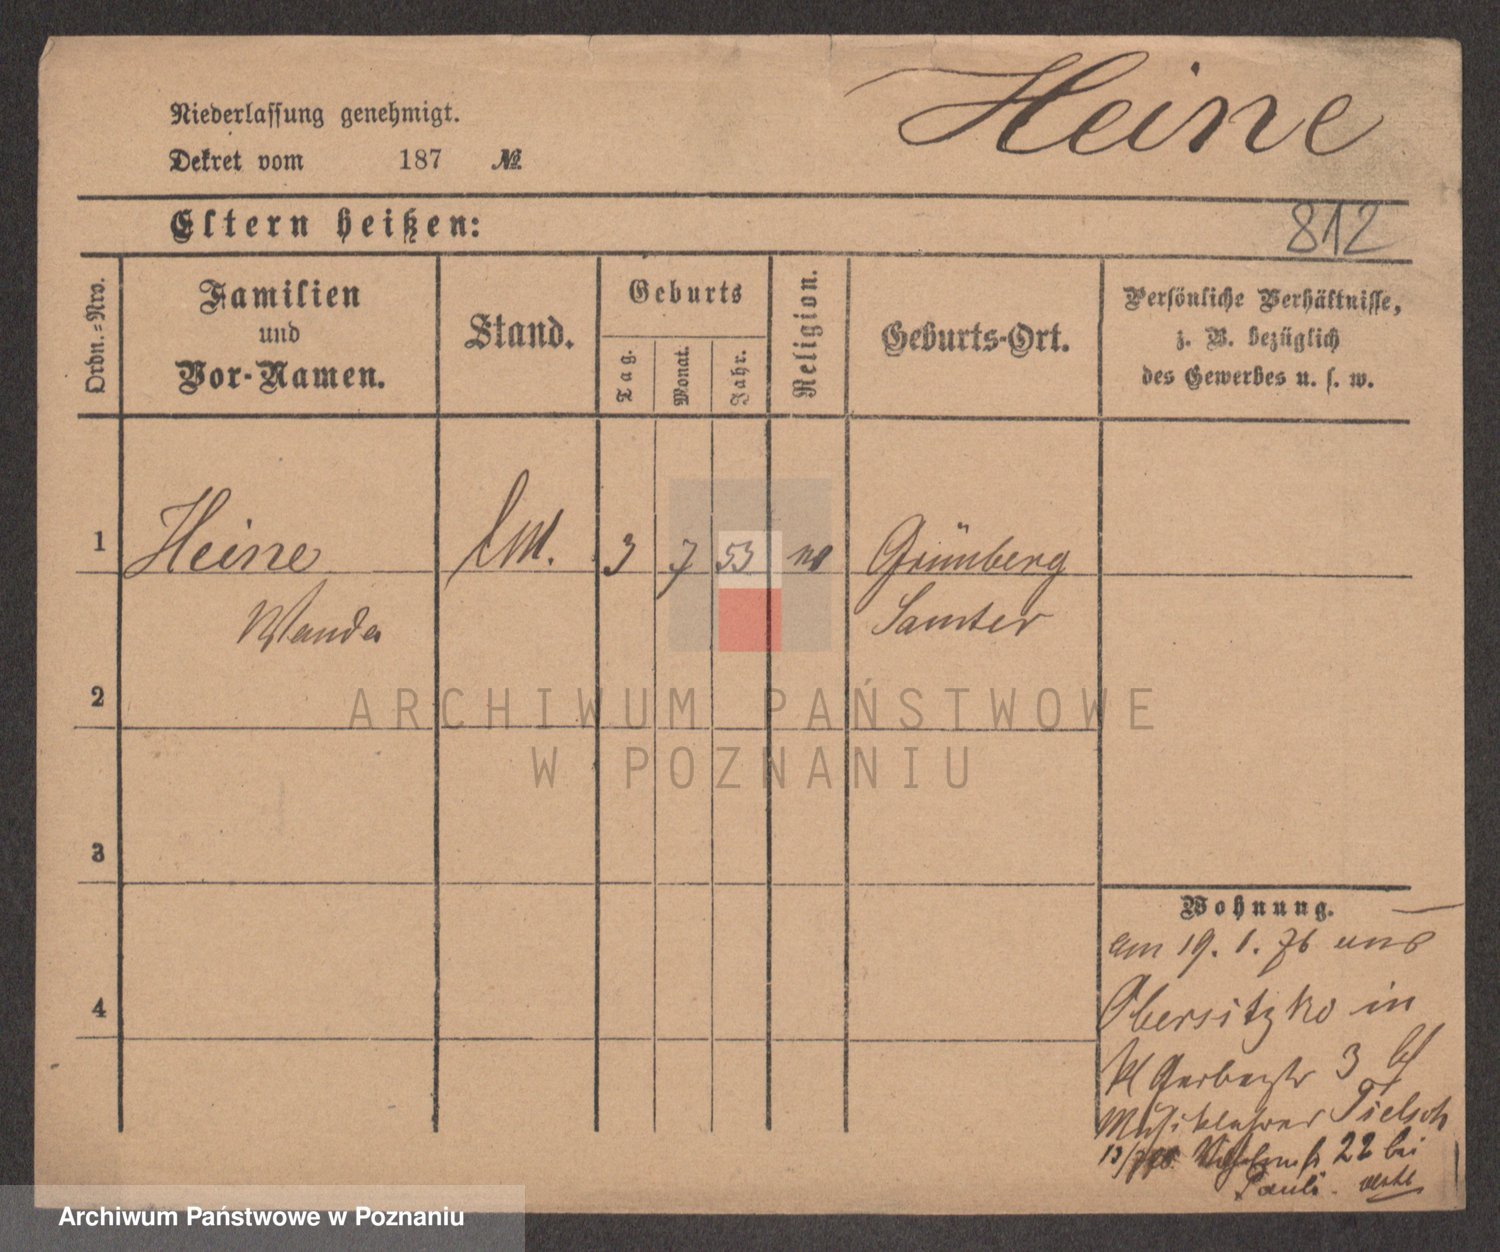 Heine
Niederlassung genehmigt.
Dekret vom 187 №
Eltern heißen:
812
Ordn.-Nro.
Familien
und
Vor-Namen.
Stand.
Geburts
Tag.
Monat.
Jahr.
Religion.
Geburts-Ort.
Persönliche Verhältnisse,
z. B. bezüglich
des Gewerbes u. s. w.
1
Heine
3 7 53
Grünberg
Wanda
Samter
2
3
4
ARCHIWUM PAŃSTWOWE
W POZNANIU
Wohnung.
am 19. 1. 76 aus
Obersitzko in
Kl Gerberstr 3 bf
Musiklehrer Tielsch
22 bei
Pauli.
Archiwum Państwowe w Poznaniu